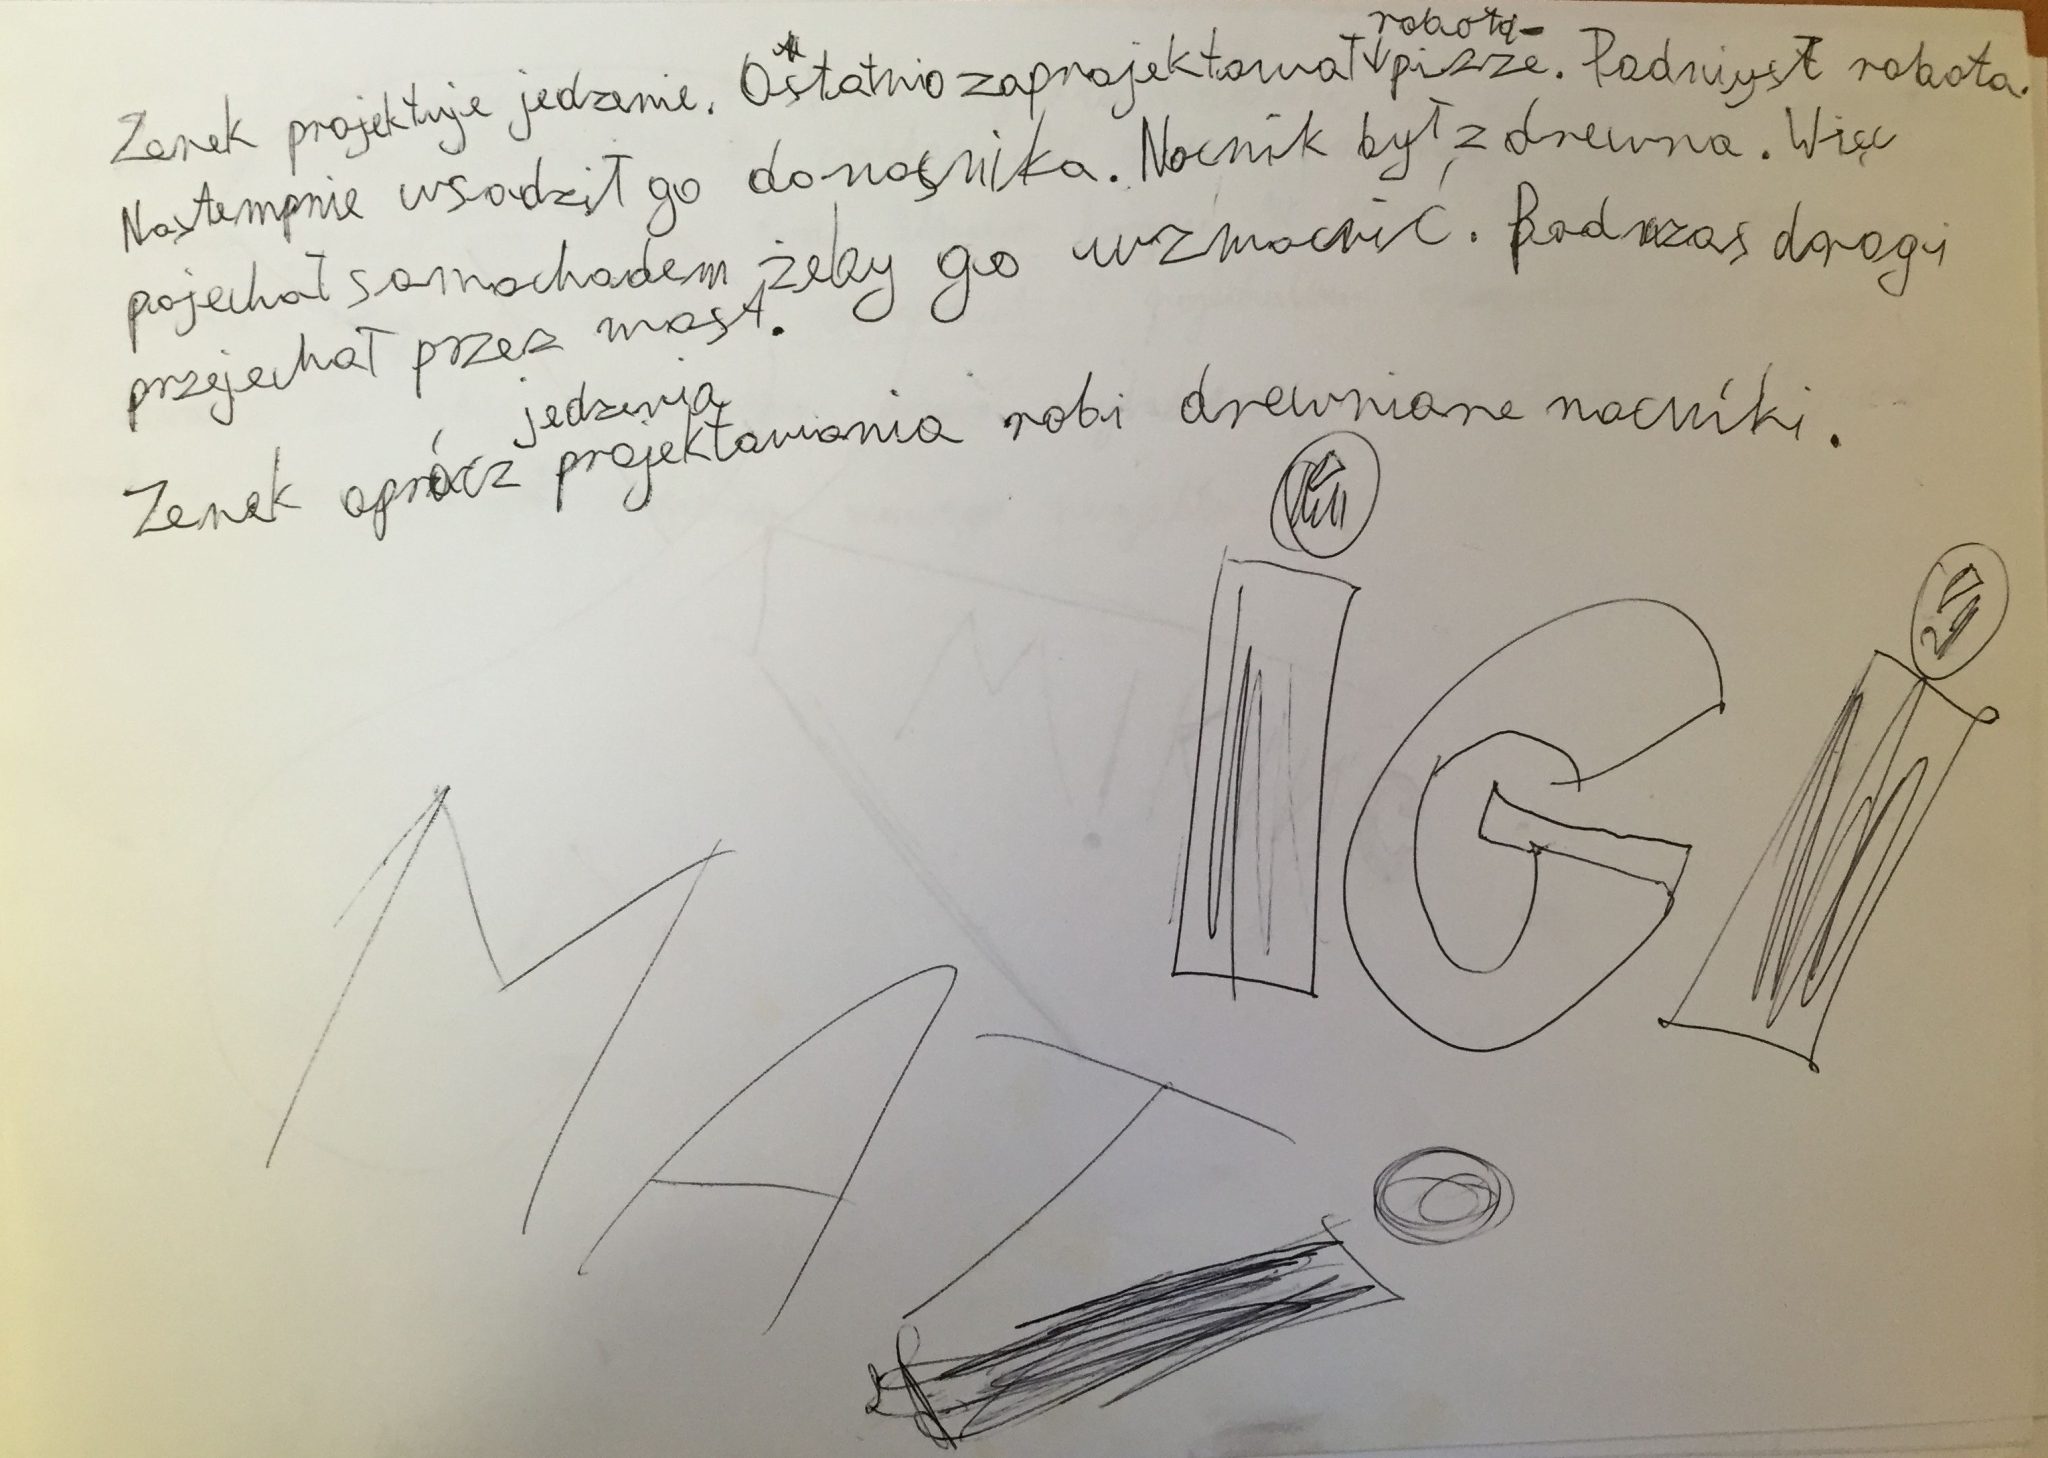 Zenek projektuje jedzenie. Ostatnio zaprojektował robota-pizze. Podniysł robota.
Nastempnie wsadził go do nocnika. Nocnik był z drewna. Więc
pojechał samochodem żeby go wzmocnić. Podczas drogi
przejechał przez most.
Zenek oprócz jedzenia projektowania robi drewniane nocniki.
iGi
MATi